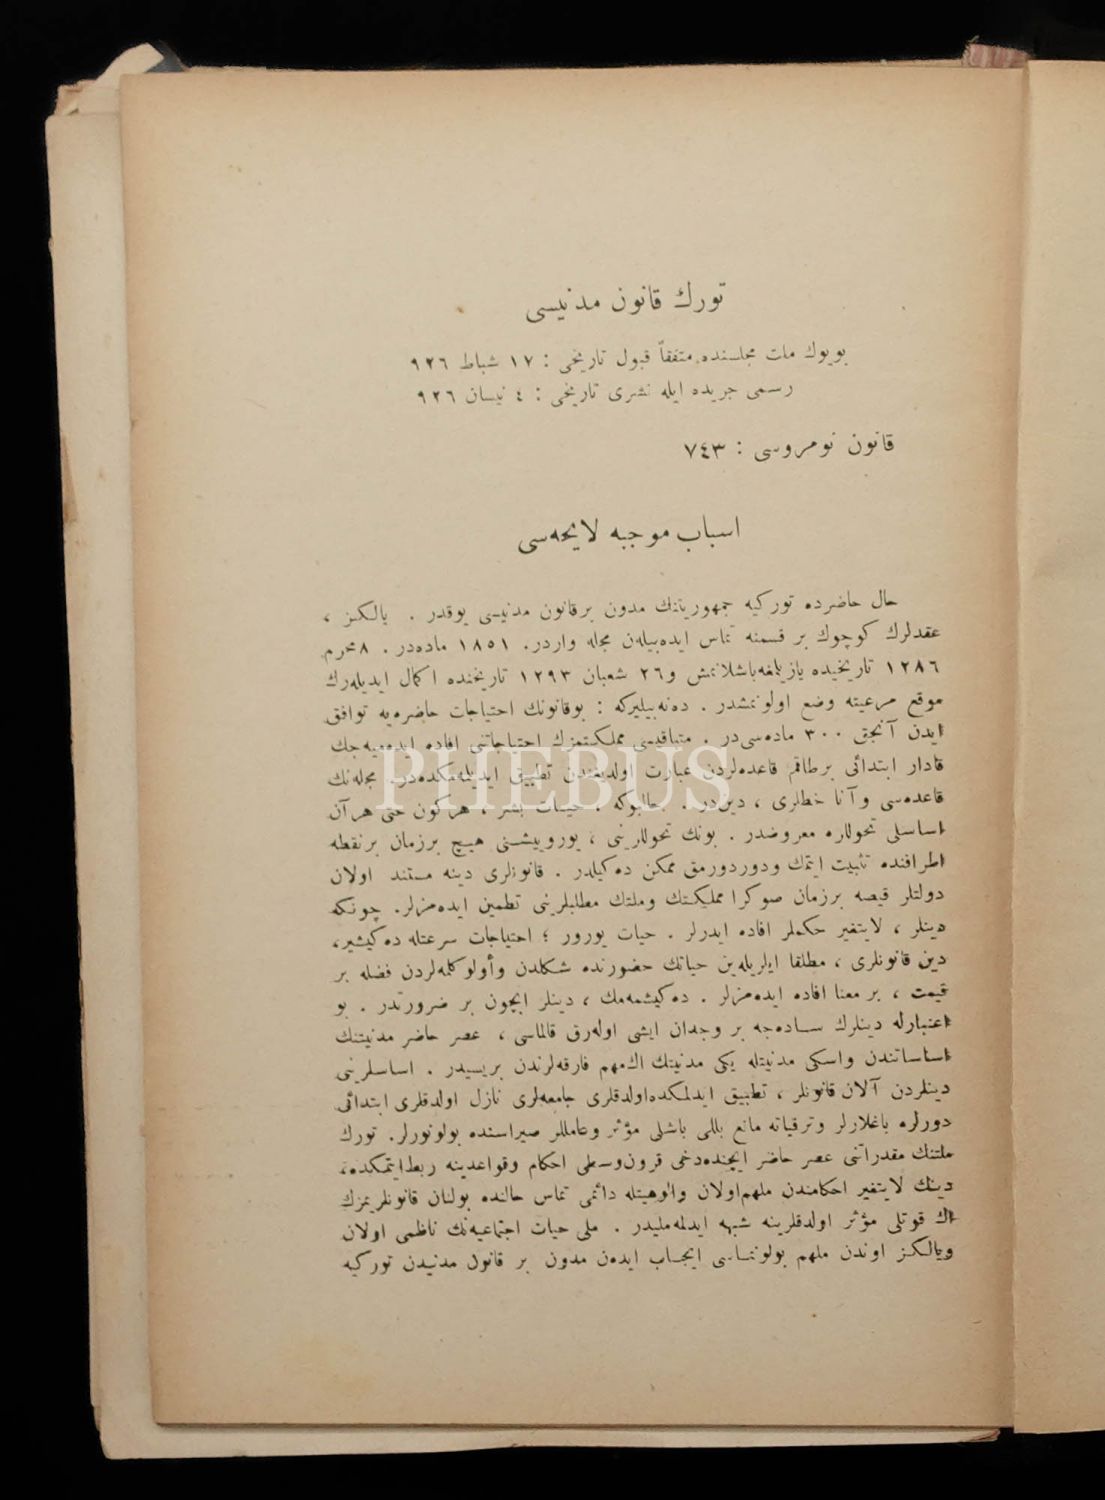 تورك قانون مدنیسی
بویوك ملت مجلسنده متفقاً قبول تاریخی : ١٧ شباط ٩٢٦
رسمی جریده ایله نشری تاریخی : ٤ نیسان ٩٢٦
قانون نومروسی : ٧٤٣
اسباب موجبه لایحه‌سی
حال حاضرده توركیه جمهوریتنك مدون برقانون مدنیسی یوقدر . یالكز ،
عقدلرك كوچوك بر قسمنه تماس ایده‌بیلەن مجله واردر. ١٨٥١ ماده‌در . ٨ محرم
١٢٨٦ تاریخیده یازیلمغه‌باشلانمش و٢٦ شعبان ١٢٩٣ تاریخنده اكمال ایدیله‌رك
موقع مرعیته وضع اولونمشدر . ده‌نه‌بیلیركه : بوقانونك احتیاجات حاضره‌یه توافق
ایدن آنجق ٣٠٠ ماده‌سی‌در . متباقیسی مملكتمزك احتیاجاتنی افاده ایده‌میه‌جك
قادار ابتدائی برطاقم قاعده‌لردن عبارت اولدیغندن تطبیق ایدیلمه‌مكده‌در. مجله‌نك
قاعده‌سی و آنا خطلری ، دین‌در . حالبوكه ، حیات بشر ، هركون حتی هرآن
اساسلی تحوللره معروضدر . بونك تحوللرینی ، یورویشنی هیچ برزمان برنقطه
اطرافنده تثبیت ایتمك ودوردورمق ممكن ده‌كیلدر . قانونلری دینه مستند اولان
دولتلر قیصه برزمان صوكرا مملكتك وملتك مطلبلرینی تطمین ایده‌مزلر. چونكه
دینلر ، لایتغیر حكملر افاده ایدرلر . حیات یورور ؛ احتیاجات سرعتله ده‌كیشیر،
دین قانونلری ، مطلقا ایلریله‌ین حیاتك حضورنده شكلدن وأولو كلمه‌لردن فضله بر
قیمت ، بر معنا افاده ایده‌مزلر . ده‌كیشمه‌مك ، دینلر ایچون بر ضرورتدر . بو
اعتبارله دینلرك ساده‌جه بر وجدان ایشی اوله‌رق قالماسی ، عصر حاضر مدنیتنك
اساساتندن واسكی مدنیتله یكی مدنیتك اك‌مهم فارقه‌لرندن بریسیدر . اساسلرینی
دینلردن آلان قانونلر ، تطبیق ایدلمكده‌اولدقلری جامعه‌لری نازل اولدقلری ابتدائی
دورلره باغلارلر وترقیاته مانع بللی باشلی مؤثر وعامللر صیراسنده بولونورلر. تورك
ملتنك مقدراتنی عصر حاضر ایچنده‌دخی قرون‌وسطی احكام وقواعدینه ربط‌ایتمكده،
دینك لایتغیر احكامندن ملهم‌اولان والوهیتله دائمی تماس حالنده بولنان قانونلریمزك
اك قوتلی مؤثر اولدقلرینه شبهه ایدلمه‌ملیدر . ملی حیات اجتماعیه‌نك ناظمی اولان
ویالكز اوندن ملهم بولونماسی ایجاب ایده‌ن مدون بر قانون مدنیدن توركیه
PHEBUS